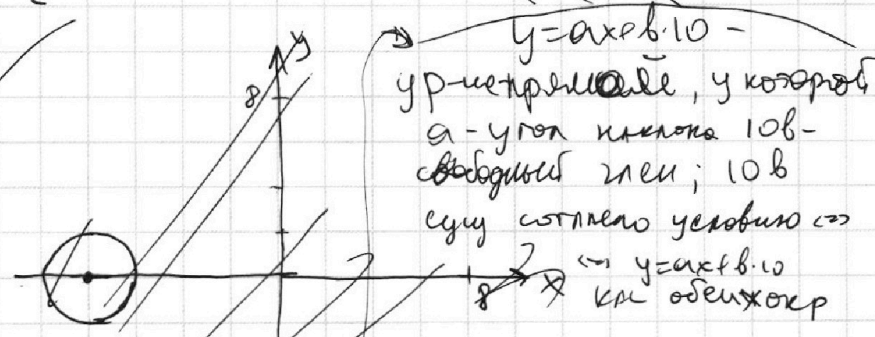 y=ax+в·10 -
ур-ие прямой, у которой
a - угол наклона 10в-
свободный член; 10в
сущ согласно условию <=>
<=> y=ax+в·10
кас обеих окр
y
8
8
x